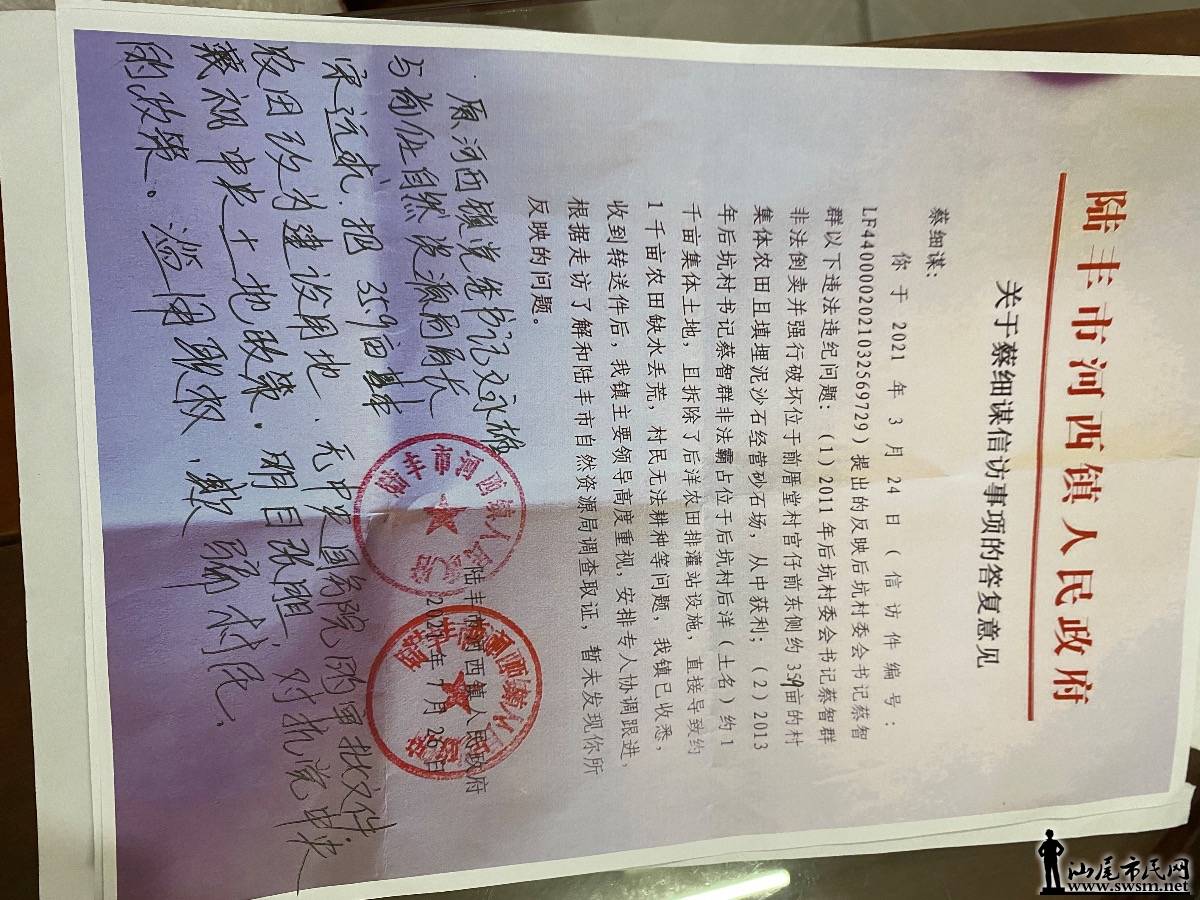 陆丰市河西镇人民政府
关于蔡细谋信访事项的答复意见
蔡细谋：
你于2021年3月24日（信访件编号：
LF44000020210325697​29）提出的反映后坑村委会书记蔡智
群以下违法违纪问题：（1）2011年后坑村委会书记蔡智群
非法倒卖并强行破坏位于前厝堂村宫仔前东侧约359亩的村
集体农田且填埋泥沙石经营砂石场，从中获利；（2）2013
年后坑村书记蔡智群非法霸占位于后坑村后洋（土名）约1
千亩集体土地，且拆除了后洋农田排灌站设施，直接导致约
1千亩农田缺水丢荒，村民无法耕种等问题，我镇已收悉，
收到转送件后，我镇主要领导高度重视，安排专人协调跟进，
根据走访了解和陆丰市自然资源局调查取证，暂未发现你所
反映的问题。
陆丰市河西镇人民政府
2021年7月26日
原河西镇党委书记
与前任自然资源局局长
宋远求.把359亩基本
农田改为建设用地.无中央国务院的审批文件
藐视中央土地政策.明目张胆 对抗党中央
的政策。滥用职权、欺骗村民.
陆丰市河西镇人民政府
汕尾市民网
www.swsm.net